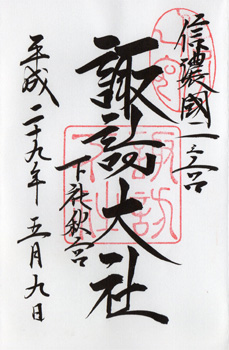 信濃國一之宮
諏訪大社
下社秋宮
平成二十九年 五月九日